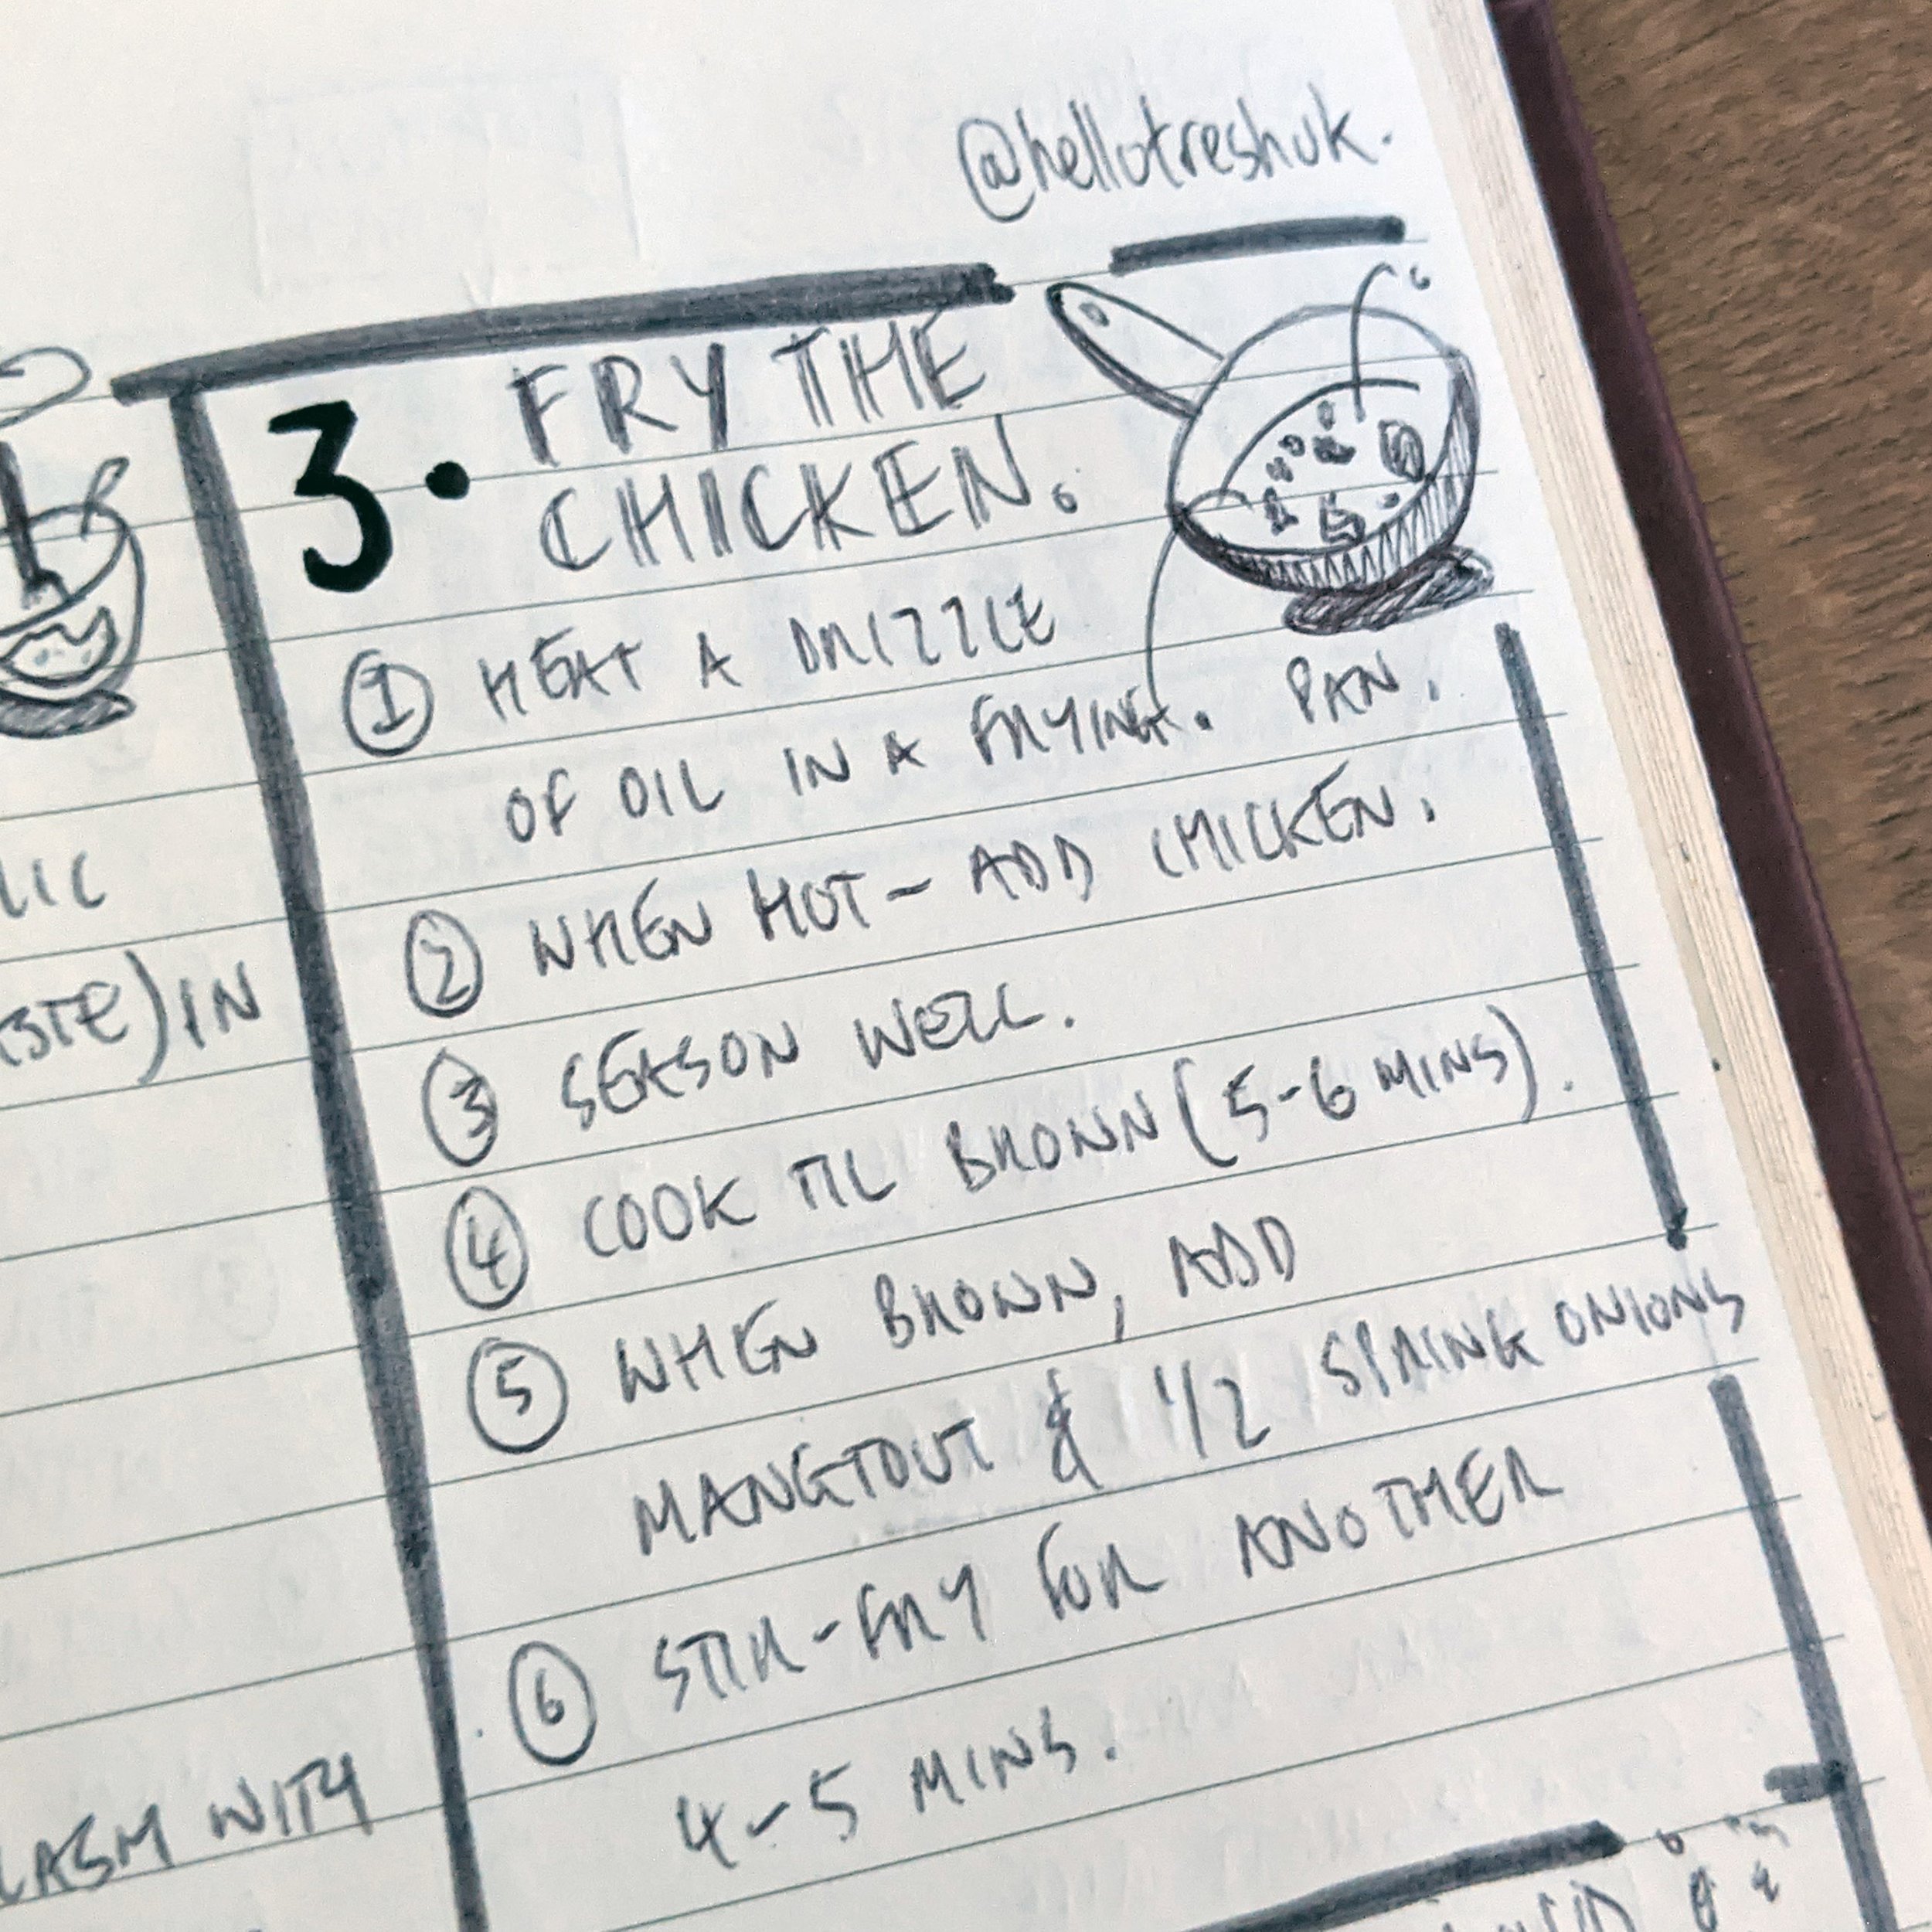 @hellofreshuk.
3. FRY THE
CHICKEN.
① HEAT A DRIZZLE
OF OIL IN A FRYING. PAN.
② WHEN HOT - ADD CHICKEN.
③ SEASON WELL.
④ COOK TIL BROWN (5-6 MINS).
⑤ WHEN BROWN, ADD
MANGTOUT & 1/2 SPRING ONIONS
⑥ STIR-FRY FOR ANOTHER
4-5 MINS.
LIC
IN
WITH